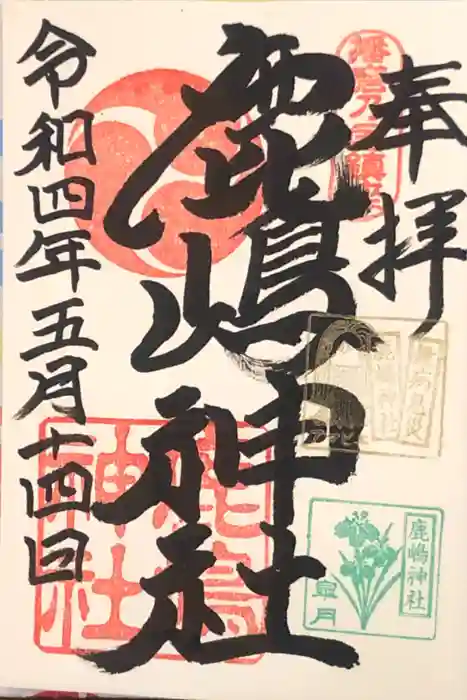 奉拝
鹿嶋神社
令和四年五月十四日
鹿嶋神社
鹿嶋神社
皐月